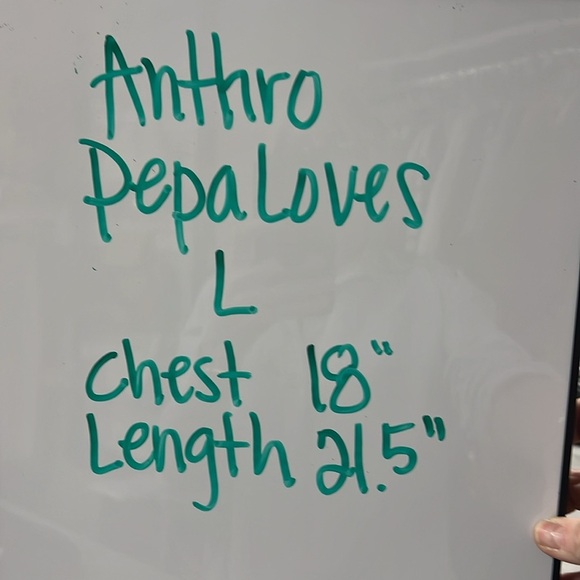 Anthro
PepaLoves
L
Chest 18"
Length 21.5"